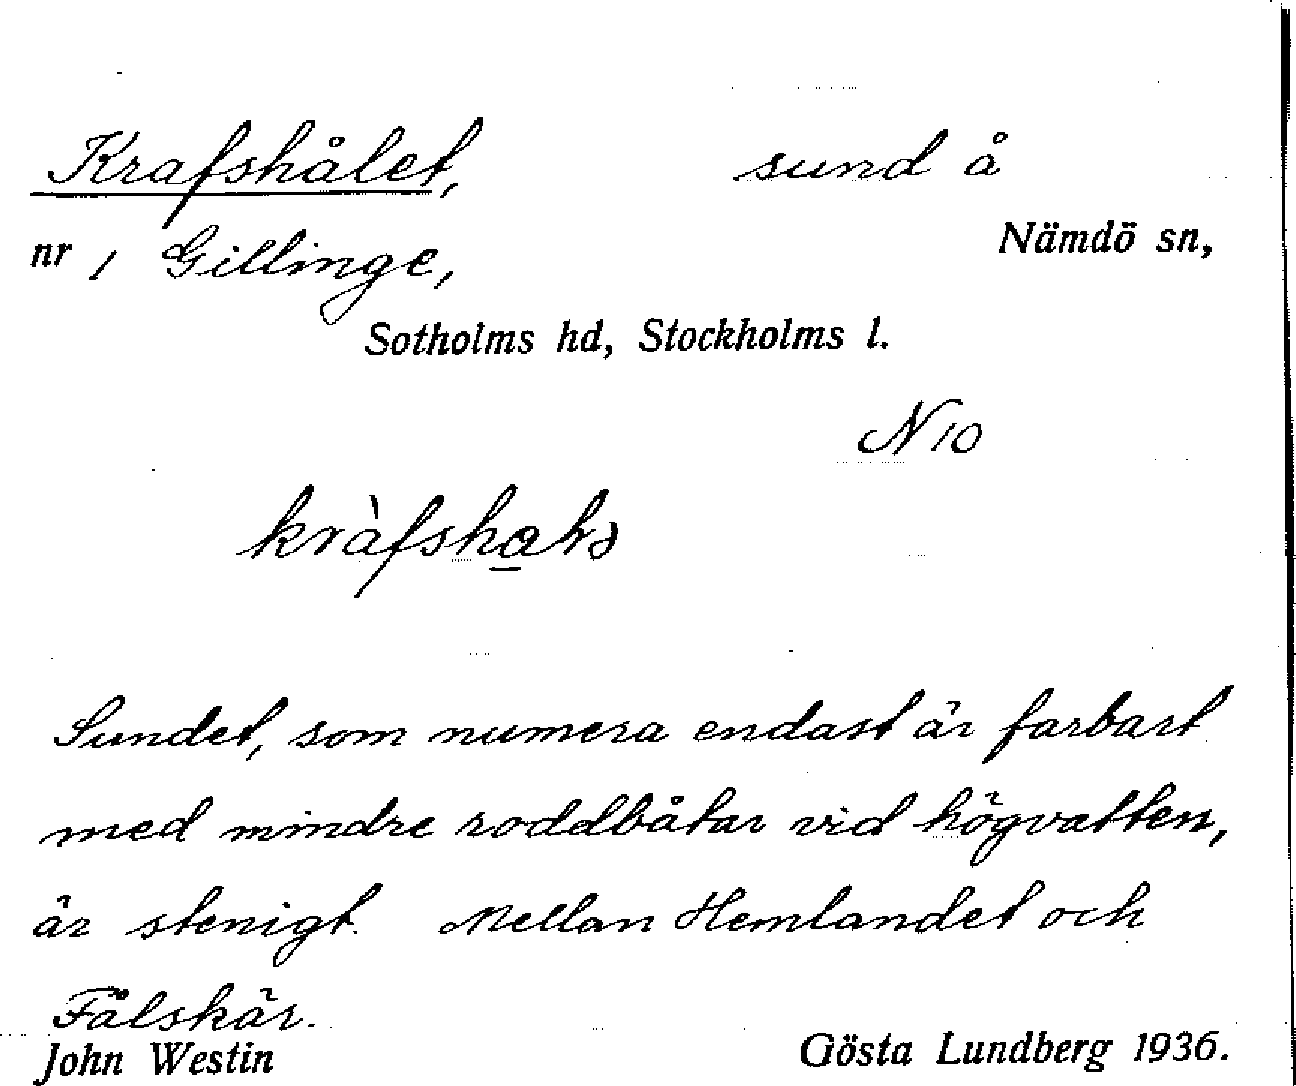 Krafshålet, sund å
nr 1 Gillinge, Nämdö sn,
Sotholms hd, Stockholms l.
N 10
Sundet, som numera endast är farbart
med mindre roddbåtar vid högvatten,
är stenigt. Mellan Hemlandet och
Fålskär.
John Westin Gösta Lundberg 1936.